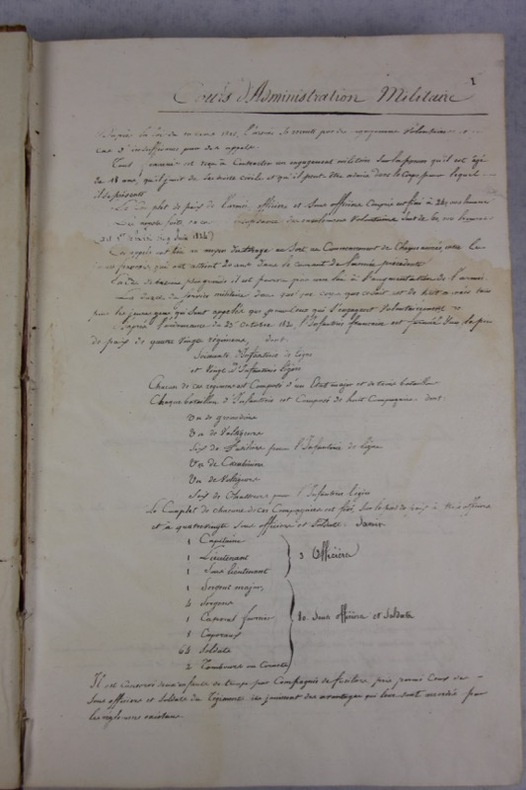 1
Cours d'Administration Militaire
D'après la loi du 10 mars 1818, l'armée se recrute par des engagemens Volontaires et en
cas d'insuffisance par des appels.
Tout français est reçu à Contracter un engagement militaire sur la preuve qu'il est âgé
de 18 ans, qu'il jouit de ses droits civils et qu'il peut être admis dans le Corps pour lequel
il se présente
Le Complet de paix de l'armée, officiers et Sous officiers Compris est fixé à 240 mille hommes
enrolement Volontaire
(Loi du 5 Juin 1824)
Les appels ont lieu au moyen du tirage au Sort au Commencement de Chaque année entre les
jeunes gens qui ont atteint 20 ans dans le courant de l'année précédente
il est pourvu par une loi à l'augmentation de l'armée
La durée du Service militaire dans quelque corps que ce soit est de huit années tant
pour les jeunes gens qui sont appelés que pour Ceux qui s'engagent Volontairement
D'après l'ordonnance du 23 Octobre 1820, l'Infanterie française est formée sur le pied
de paix de quatre vingts régimens, dont:
Soixante d'Infanterie de ligne
et Vingt d'Infanterie légère
Chacun de ces régimens est Composé d'un Etat major et de trois bataillons
Chaque bataillon d'Infanterie est Composé de huit Compagnies dont:
Une de grenadiers
Une de Voltigeurs
Six de Fusiliers pour l'Infanterie de ligne
Une de Carabiniers
Une de Voltigeurs
Six de Chasseurs pour l'Infanterie légère
Le Complet de chacune de ces Compagnies est fixé, Sur le pied de paix à trois officiers
et à quatrevingts Sous officiers et Soldats: Savoir
1 Capitaine
1 Lieutenant
1 Sous lieutenant
3 Officiers
1 Sergent major,
4 Sergens
1 Caporal fourrier
8 Caporaux
64 Soldats
2 Tambours ou Cornets
80 Sous officiers et Soldats
Il est Conservé deux enfans de troupe par Compagnie de fusiliers pris parmi Ceux des
Sous officiers et Soldats du Régiment ils jouissent des avantages qui leur sont accordés par
les règlemens existans.